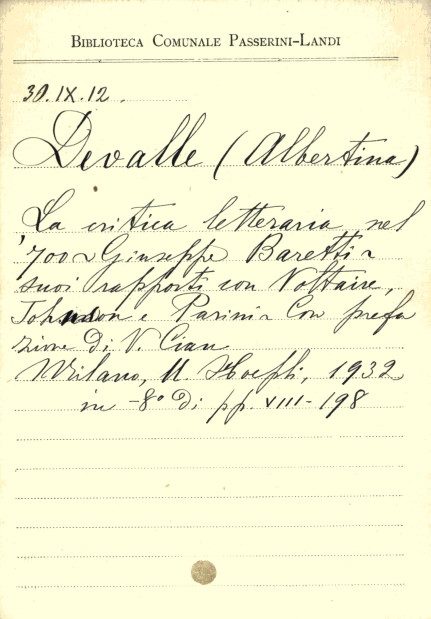 BIBLIOTECA COMUNALE PASSERINI-LANDI
30.IX.12.
Devalle (Albertina)
La critica letteraria nel
'700 ~ Giuseppe Baretti ~
suoi rapporti con Voltaire,
Johnson e Parini ~ Con prefa
zione di V. Cian
Milano, U. Hoepli, 1932
in -8° di pp. VIII-198